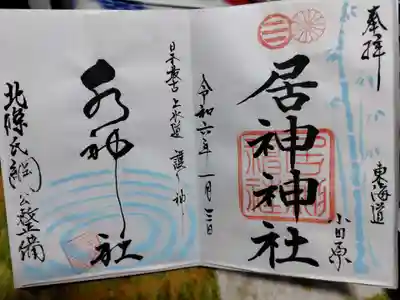 奉拝
東海道
小田原
居神神社
令和六年一月三日
日本最古上水道護り神
水神社
北條氏綱公整備